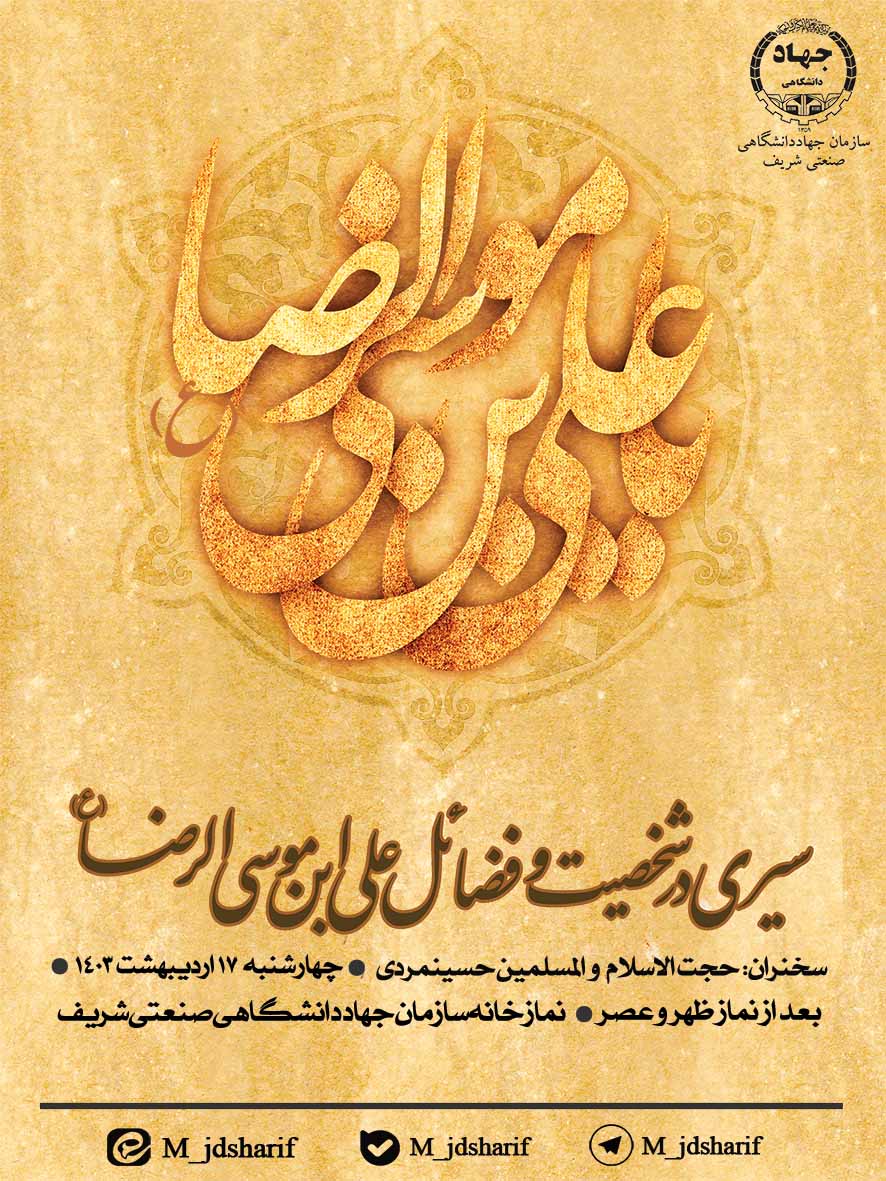 جهاد
دانشگاهی
۱۳۵۹
سازمان جهاددانشگاهی
صنعتی شریف
یا علی بن موسی الرضا (ع)
سیری در شخصیت و فضائل علی ابن موسی الرضا (ع)
سخنران: حجت الاسلام و المسلمین حسینمردی ● چهارشنبه ۱۷ اردیبهشت ۱۴۰۳ ●
بعد از نماز ظهر و عصر ● نمازخانه سازمان جهاددانشگاهی صنعتی شریف
M_jdsharif M_jdsharif M_jdsharif